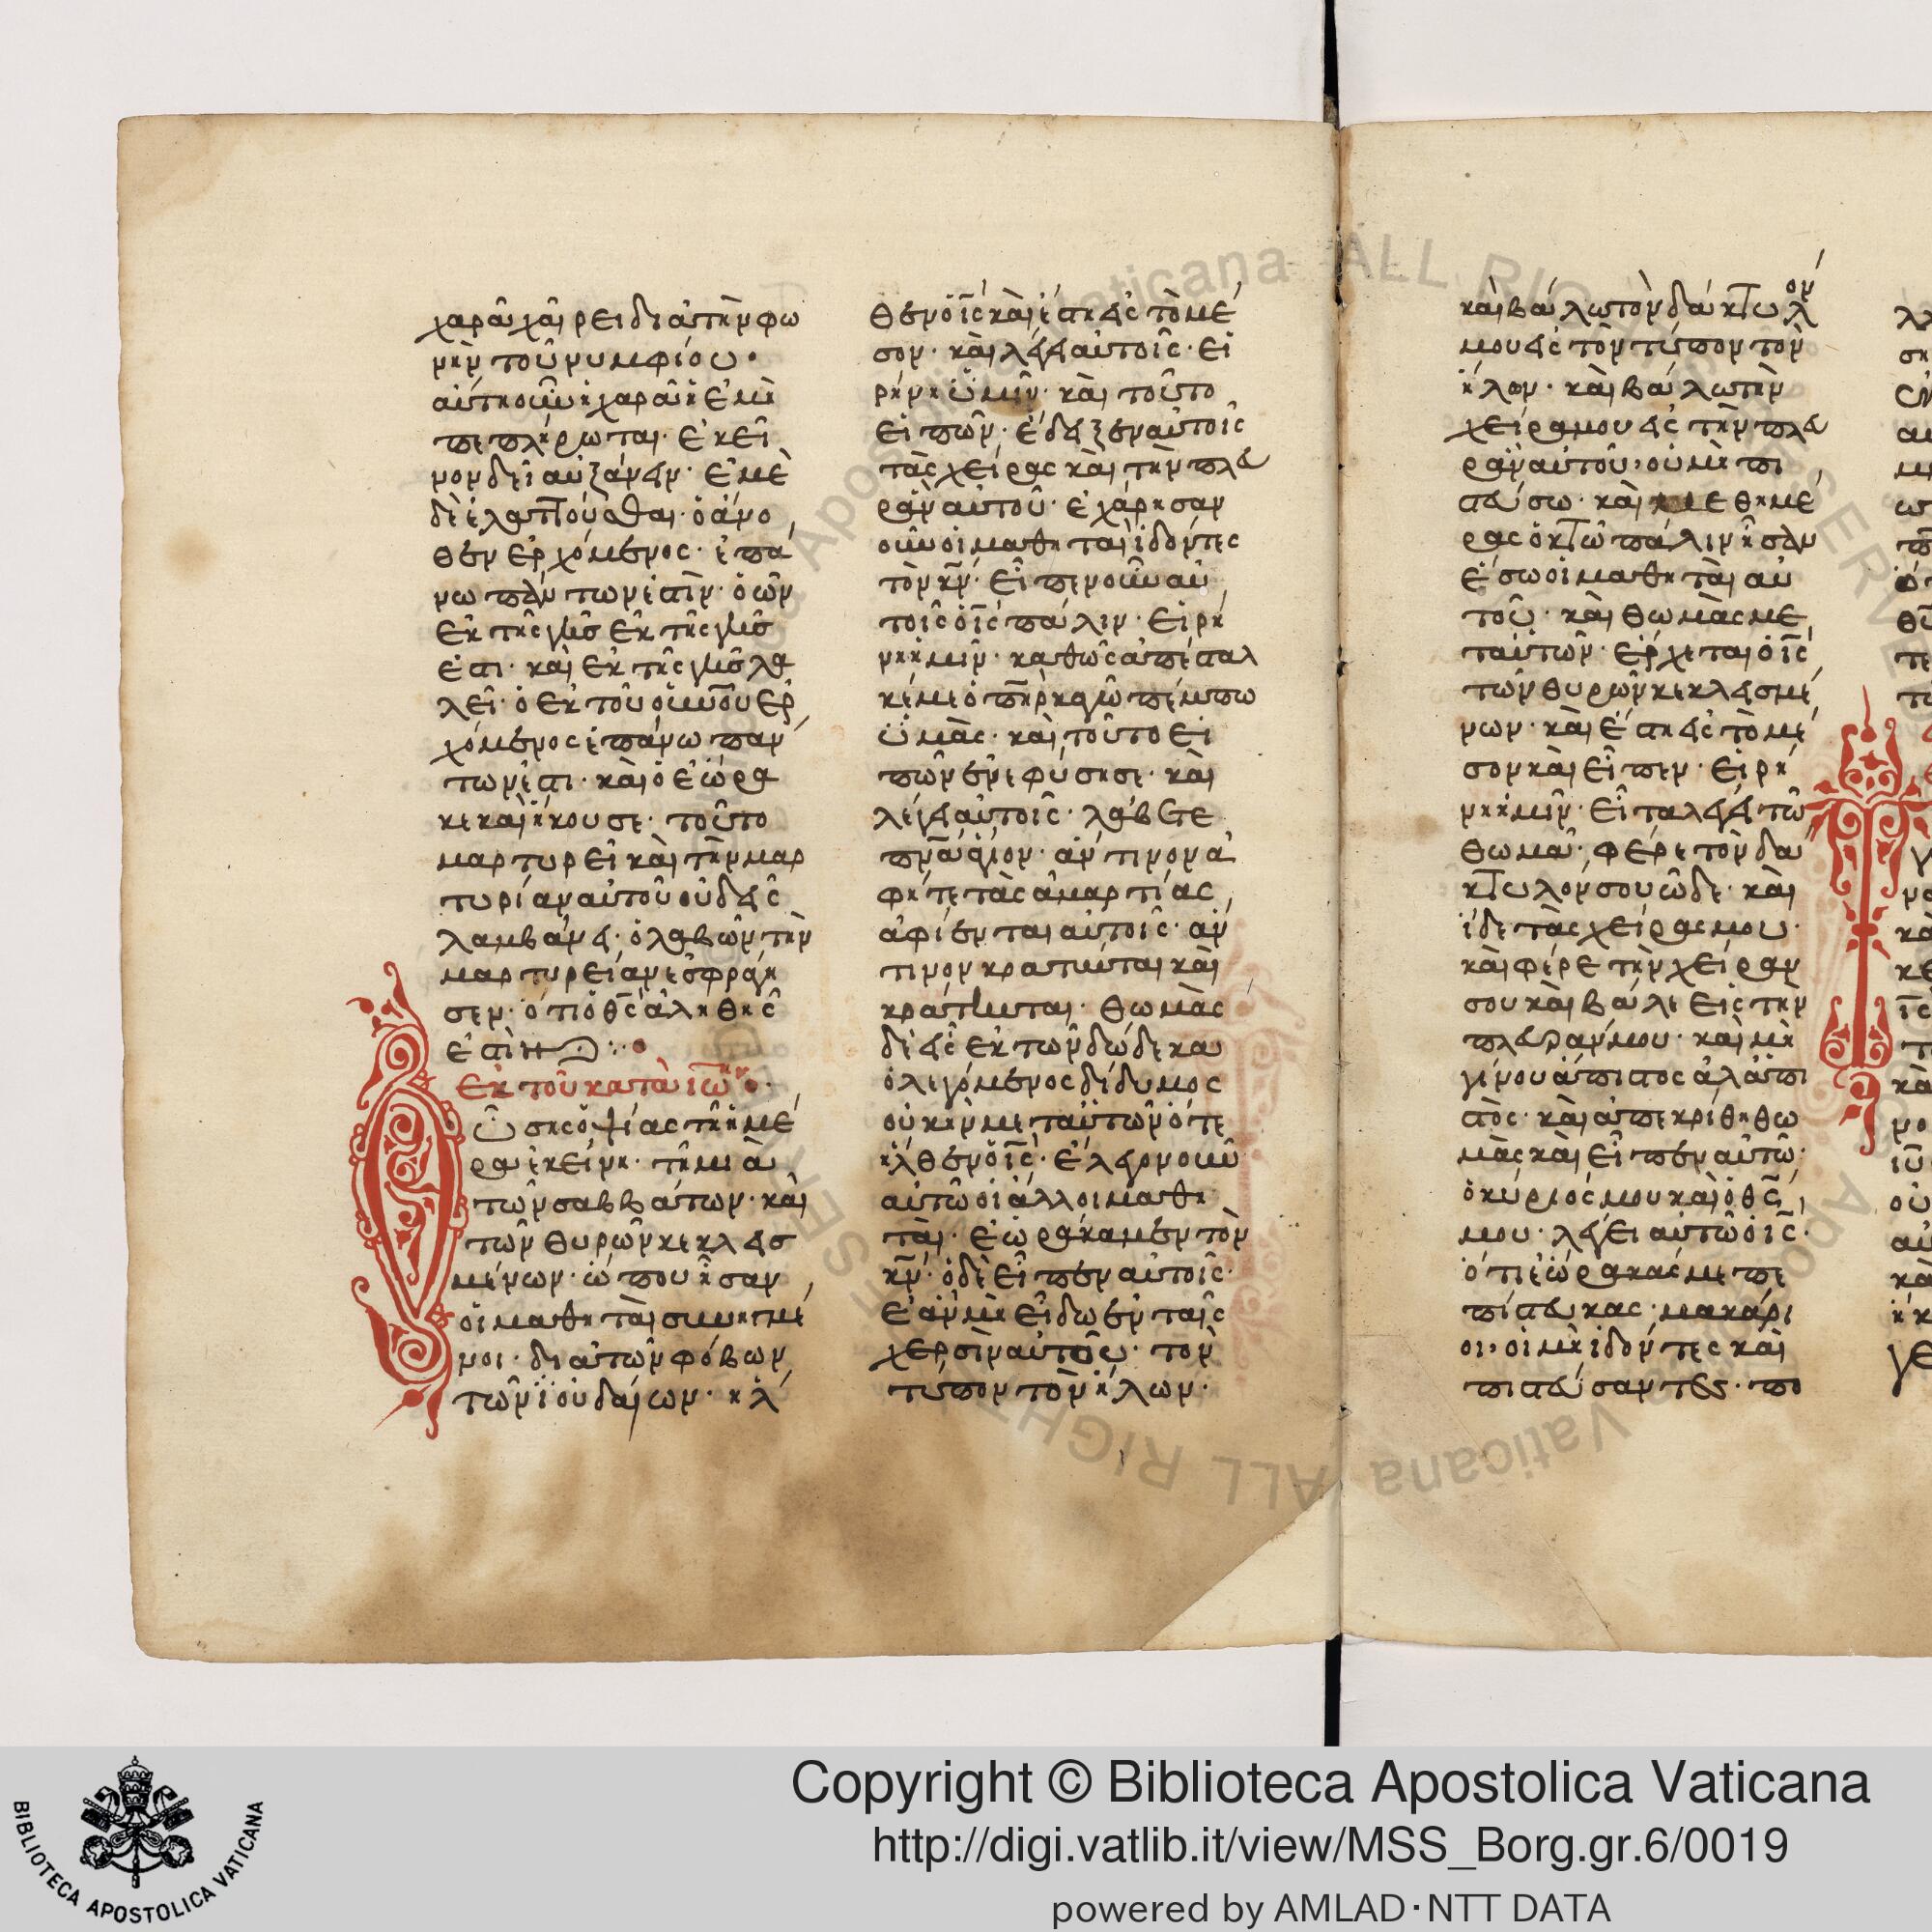 χαρᾶ χαῖρει δι ἀτὴν φω
νὴν τοῦ νυμφίου·
αὕτη οὖν ἡ χαρᾶ ἡ ἐμὴ
πεπλήρωται· ἐκεῖ
νον δεῖ αὐξάνειν· ἐμὲ
δὲ ἐλαττοῦσθαι· ὁ ἄνο
θεν ἐρχόμενος· ἐπά
νω πάντων ἐστὶν· ὁ ὢν
ἐκ τῆς γῆς ἐκ τῆς γῆς
ἐστι· καὶ ἐκ τῆς γῆς λα
λεῖ· ὁ ἐκ τοῦ οὐνοῦ ἐρ
χόμενος ἐπάνω παν
των ἐστι· καὶ ὃ ἑώρα
κε καὶ ἤκουσε· τοῦτο
μαρτυρεῖ καὶ τὴν μαρ
τυρίαν αὐτοῦ οὐδεὶς
λαμβάνει· ὁ λαβὼν τὴν
μαρτυρείαν ἐσφράγη
σεν· ὅτι ὁ θς ἀληθὴς
ἐστὶν
ἐκ τοῦ κατὰ ἰω
Ὀύσης ὀψίας τῆ ἡμέ
ρα ἐκείνη· τῆ μιᾶ
τῶν σαββάτων· καὶ
τῶν θυρῶν κεκλεισ
μένων· ὥπου ἦσαν
οἱ μαθηταὶ συνηγμέ
νοι· δι ατῶν φόβων
τῶν ἰουδαίων· ἠλ
θεν ὁ ις καὶ ἔστη εἰς τὸ μέ
σον· καὶ λέγει αὐτοῖς· εἰ
ρήνη ὑμῖν· καὶ τοῦτο
εἰπὼν· ἔδειξεν αὐτοῖς
τὰς χεῖρας καὶ τὴν πλευ
ρὰν αὐτοῦ· ἐχάρησαν
οὖν οἱ μαθηταὶ ἰδόντες
τὸν κν· εἶπεν οὖν αὐ
τοῖς ὁ ις πάλιν· εἰρή
νη ἡμῖν· καθὼς ἀπέσταλ
κέ με ὁ πηρ καγὼ πέμπω
ὑμὰς· καὶ τοῦτο εἰ
πὼν ἐνεφύσησε· καὶ
λέγει αὐτοῖς· λάβετε
πνα ἅγιον· ἄν τινον ἀ
φῆτε τὰς ἁμαρτίας
ἀφίενται αὐτοῖς· ἄν
τινον κρατῆται καὶ
κράτηνται· θωμὰς
δὲ εἷς ἐκ τῶν δώδεκα
ὁ λεγόμενος δίδυμος
οὐκ ἦν μετ αὐτῶν ὅτε
ἦλθεν ὁ ις· ἔλεγον οὖν
αὐτῶ οἱ ἄλλοι μαθη
ταὶ· ἑωράκαμεν τὸν
κν· ὁ δὲ εἶπεν αὐτοῖς·
ἐὰν μὴ εἴδω ἐν ταῖς
χερσὶν αὐτοῦ· τὸν
τύπον τὸν ἥλων·
καὶ βάλω τὸν δάκτυλ ον
μου εἰς τὸν τύπον τὸν
ἥλον· καὶ βάλω τὴν
χεῖρα μου εἰς τὴν πλευ
ρὰν αὐτοῦ, οὐ μὴ πι
στεύσω· καὶ μεθ ημέ
ρας ὀκτὼ πάλιν ἦσαν
ἔσω οἱ μαθηταὶ αὐ
τοῦ· καὶ θωμὰς με
τ αὐτῶν· ἔρχεται ὁ ις
τῶν θυρῶν κεκλεισμέ
νων· καὶ ἔστη εἰς τὸ μέ
σον καὶ εἶπεν· εἰρή
νη ἡμῖν· εἶτα λέγει τῶ
θωμᾶ· φέρε τὸν δα
κτυλόν σου ὧδε· καὶ
ἴδε τὰς χεῖρας μου·
καὶ φέρε τὴν χεῖραν
σου καὶ βάλε εἰς τὴν
πλευραν μου· καὶ μὴ
γίνου ἄπιστος ἀλὰ πι
στὸς· καὶ ἀπεκρίθη θω
μὰς καὶ εἶπεν αὐτῶ·
ὁ κύριός μου καὶ ὁ θς
μου· λέγει αὐτῶ ὁ ις·
ὅτι ἑώρακάς με πε
πίστευκας· μακάρι
οι, οἱ μὴ ἰδόντες καὶ
πιστεύσαντες· πο
Copyright © Biblioteca Apostolica Vaticana
http://digi.vatlib.it/view/MSS_Borg.gr.6/0019
powered by AMLAD·NTT DATA
BIBLIOTECA APOSTOLICA VATICANA